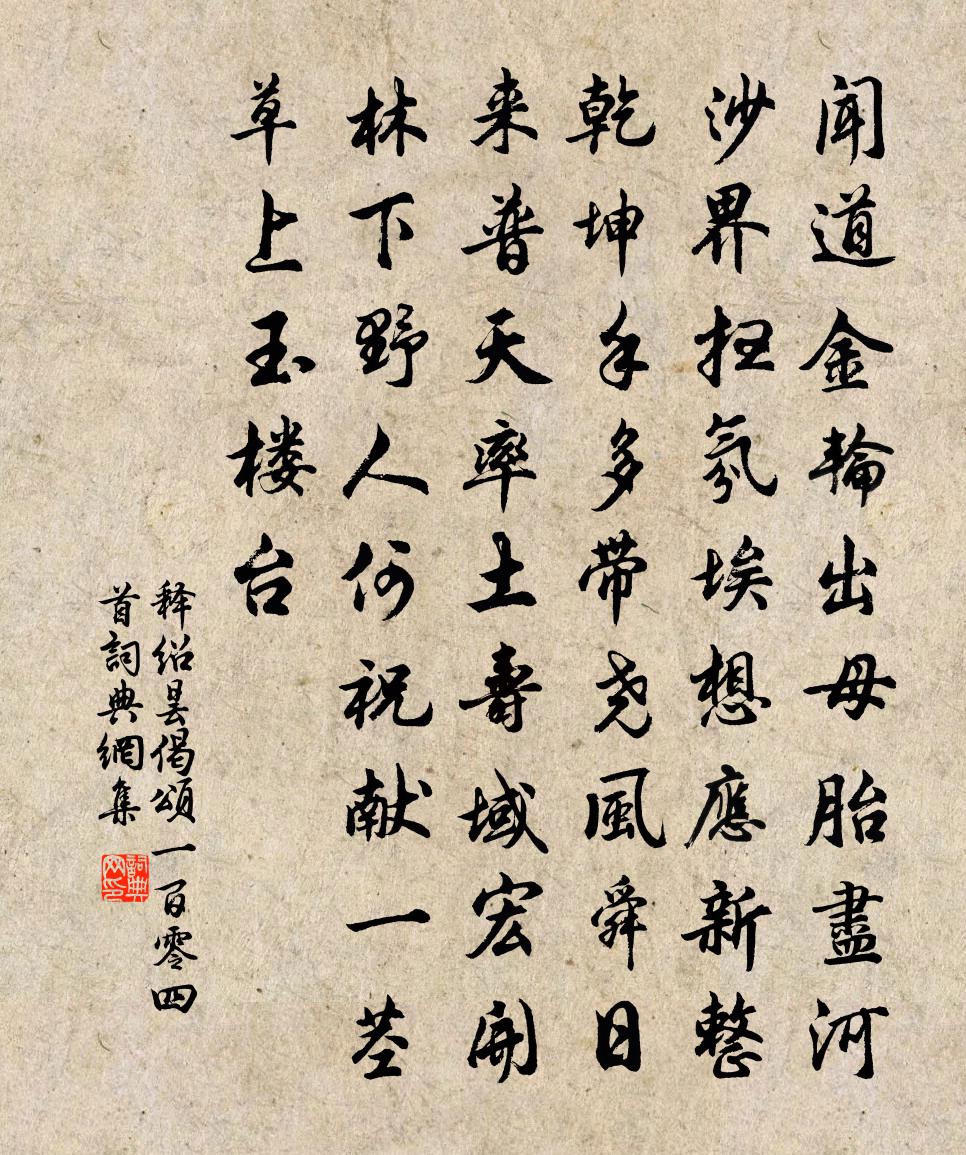 闻道金輪出母胎盡河
沙界扫氛埃想應新整
乾坤手多带尧風舜日
来普天率土壽域宏開
林下野人何祝献一茎
草上玉楼台
释绍昙偈頌一百零四
首詞典網集